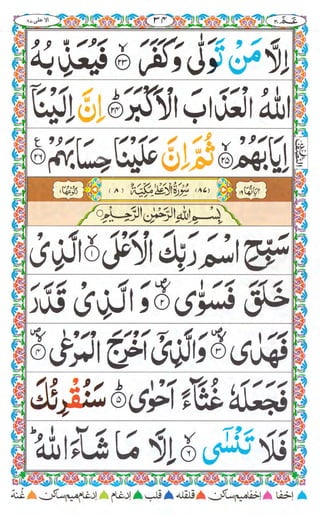 عمّ ۳۰ ۳۴ الاعلى ۸۷
اِلَّا مَنْ تَوَلّٰى وَكَفَرَ ۙ﴿۲۳﴾ فَيُعَذِّبُهُ
اللّٰهُ الْعَذَابَ الْاَكْبَرَ ؕ﴿۲۴﴾ اِنَّ اِلَيْنَاۤ
اِيَابَهُمْ ۙ﴿۲۵﴾ ثُمَّ اِنَّ عَلَيْنَا حِسَابَهُمْ ﴿۲۶﴾
اٰيَاتُهَا ۱۹ ﴿۸۷﴾ سُوْرَةُ الْاَعْلٰى مَكِّيَّةٌ ﴿۸﴾ رُكُوْعُهَا ۱
بِسْمِ اللّٰهِ الرَّحْمٰنِ الرَّحِيْمِ
سَبِّحِ اسْمَ رَبِّكَ الْاَعْلَى ۙ﴿۱﴾ الَّذِىْ
خَلَقَ فَسَوّٰى ۪ۙ﴿۲﴾ وَ الَّذِىْ قَدَّرَ
فَهَدٰى ۪ۙ﴿۳﴾ وَالَّذِىْۤ اَخْرَجَ الْمَرْعٰى ۪ۙ﴿۴﴾
فَجَعَلَهٗ غُثَآءً اَحْوٰى ؕ﴿۵﴾ سَنُقْرِئُكَ
فَلَا تَنْسٰٓى ۙ﴿۶﴾ اِلَّا مَا شَآءَ اللّٰهُ ؕ
اخفا اخفا میم ساکن قلقله قلب ادغام ادغام میم ساکن غنه